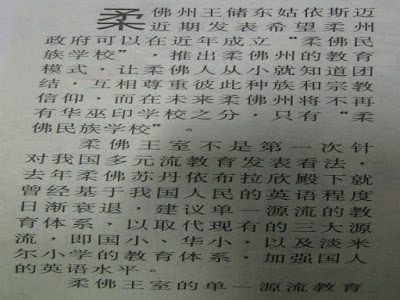 柔佛州王储东姑依斯迈
近期发表希望柔州
政府可以在近年成立“柔佛民
族学校”，推出柔佛州的教育
模式，让柔佛人从小就知道团
结，互相尊重彼此种族和宗教
信仰，而在未来柔佛州将不再
有华巫印学校之分，只有“柔
佛民族学校”。
柔佛王室不是第一次针
对我国多元流教育发表看法，
去年柔佛苏丹依布拉欣殿下就
曾经基于我国人民的英语程度
日渐衰退，建议单一源流的教
育体系，以取代现有的三大源
流，即国小、华小，以及淡米
尔小学的教育体系，加强国人
的英语水平。
柔佛王室的单一源流教育